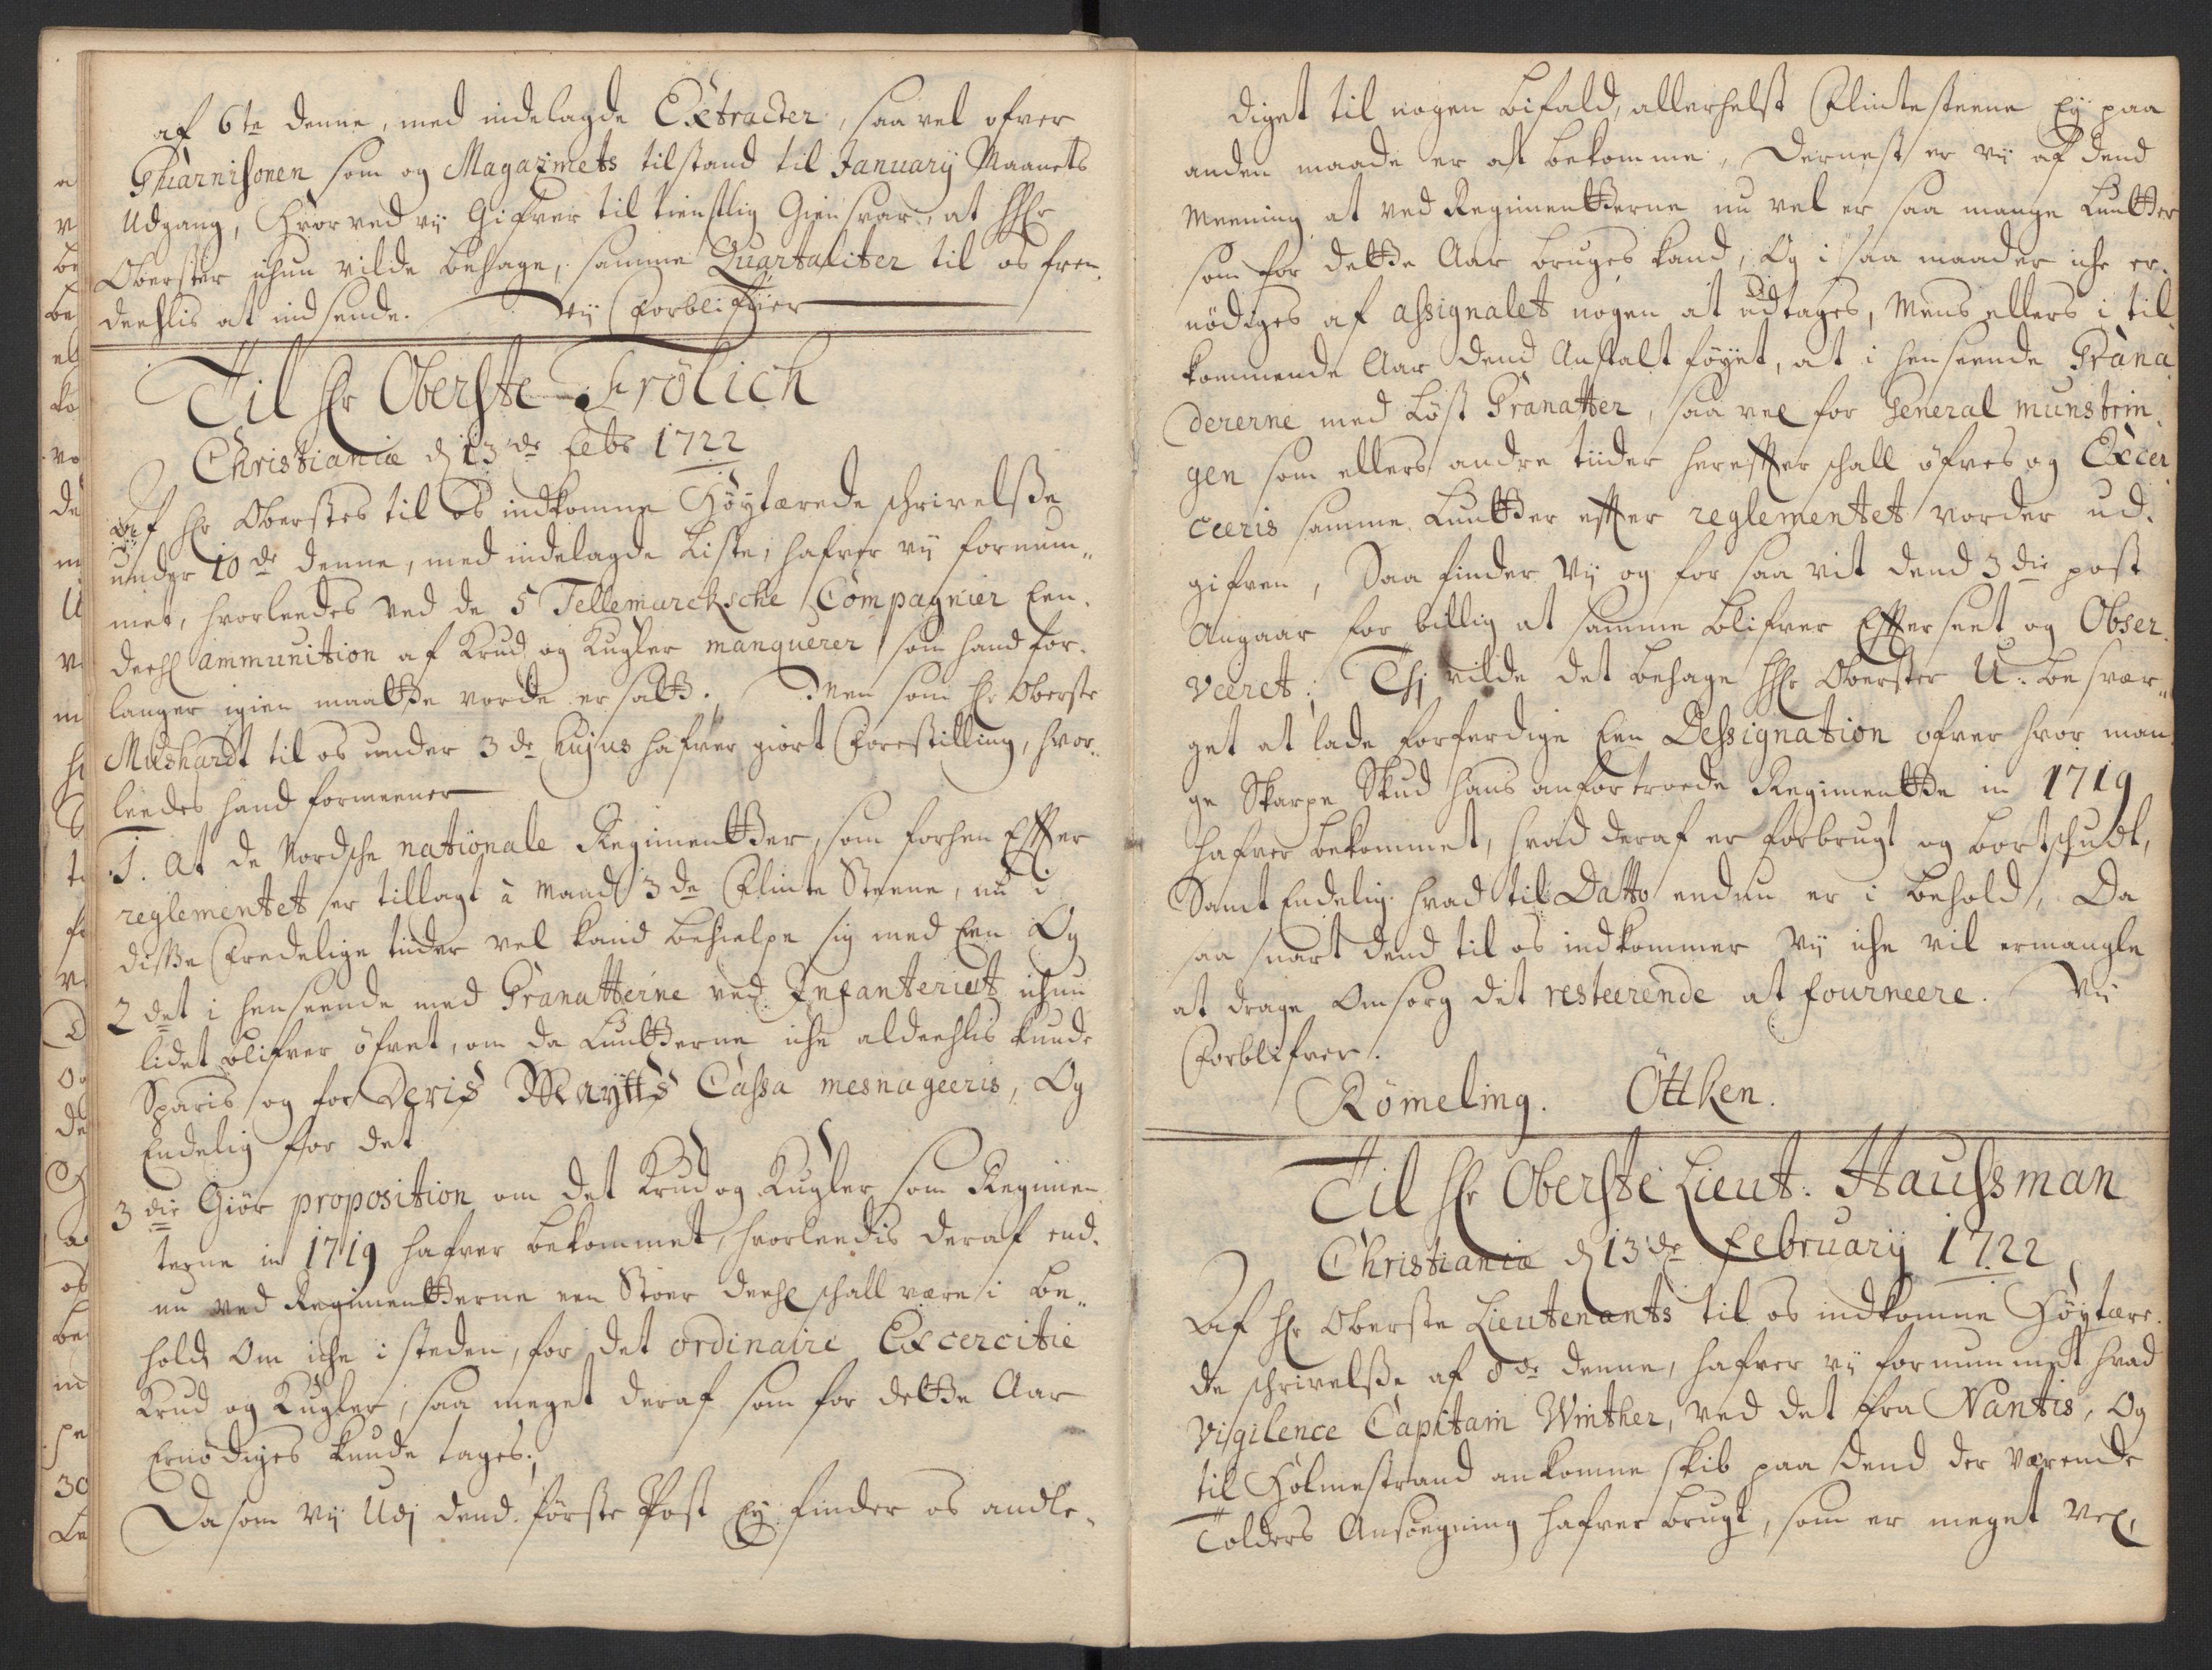 af 6te denne, med indelagde Extracter, saa vel ofver
Guarnisonen som og Magazinets tilstand til January Maanets
Udgang, Hvorved vÿ Gifver til tienstlig Giensvar, at HHr
Oberster ichun vilde behage, samme Quartaliter til os frem-
deehlis at indsende. Vÿ Forblifver
Til Hr Oberste Frölich
Christiania d 13de Febr 1722
Af Hr Oberstes til os indkomne Höÿtærede schrivelsse
under 10de denne, med indelagde Liste, hafver vÿ fornum-
met, hvorleedes ved de 5 Tellemarcksche Compagnier Een
Deehl ammunition af Krud og Kugler manquerer, som hand for-
langer igien maatte vorde ersatt. Men som Hr Oberste
Mushardt til os under 3de hujus hafver giort Forestilling, hvor-
leedes hand formeener
1. At de Nordsche nationale Regimentter, som forhen Efter
reglementet er tillagt à Mand 3de Flinte Steene, nu i
disse Fredelige tiider vel kand behielpe sig med Een Og
2det i henseende med Granatterne ved Infanteriet ichun
lidet blifver öfvet, om da Luntterne iche aldeehlis kunde
Sparis og for Deris Maÿtts Cassa mesnageeris, Og
Endelig for det
3die Giör proposition om det Krud og Kugler som Regimen-
terne in 1719 hafver bekommet, hvorleedis deraf end-
nu ved Regimentterne een Stoer deehl schall være i be-
hold, Om iche i steden, for det ordinaire Excercitie
Krud og Kugler, saa meget deraf som for dette Aar
Ernödiges kunde tages;
Da som vÿ Udj dend förste Post Eÿ finder os andle-
diget til nogen bifald, allerhelst Flintesteene Eÿ paa
anden maade er at bekomme, Dernest er vÿ af dend
Meening at ved Regimentterne nu vel er saa mange Luntter
som for dette Aar bruges kand, Og i saa maader iche er-
nödiges af assignalet nogen at udtages, Mens ellers i til-
kommende Aar dend Anstalt föÿet, at i henseende Grana-
dererne med Löst Granatter, saa vel for General munstrin-
gen som ellers andre tiider herefter schall öfves og Excer-
ceeris samme Luntter efter reglementet vorder ud-
gifven, Saa finder Vÿ og for saa vit dend 3die post
Angaar for billig at samme blifver Efterseet og Obser-
veeret; Thj vilde det behage HHr Oberster U-besvær-
get at lade forferdige Een Dessignation ofver hvor man-
ge Skarpe Skud hans anfortroede Regimentte in 1719
hafver bekommet, hvad deraf er forbrugt og bortschudt,
Samt Endelig hvad til Datto endnu er i behold, Da
saa snart dend til os indkommer vÿ iche vil ermangle
at drage Omsorg det resteerende at fourneere. Vÿ
Forblifver.
Römeling. Öttken.
Til Hr Oberste Lieut. Haussman
Christiania d 13de February 1722
Af Hr Oberste Lieutenants til os indkomne Höÿtære-
de schrivelsse af 8de denne, hafver vÿ fornummet hvad
Vigilence Capitain Winther, ved det fra Nantis, Og
til Holmestrand ankomne skib paa dend der værende
Tolders Ansoegning hafver brugt, som er meget vel,